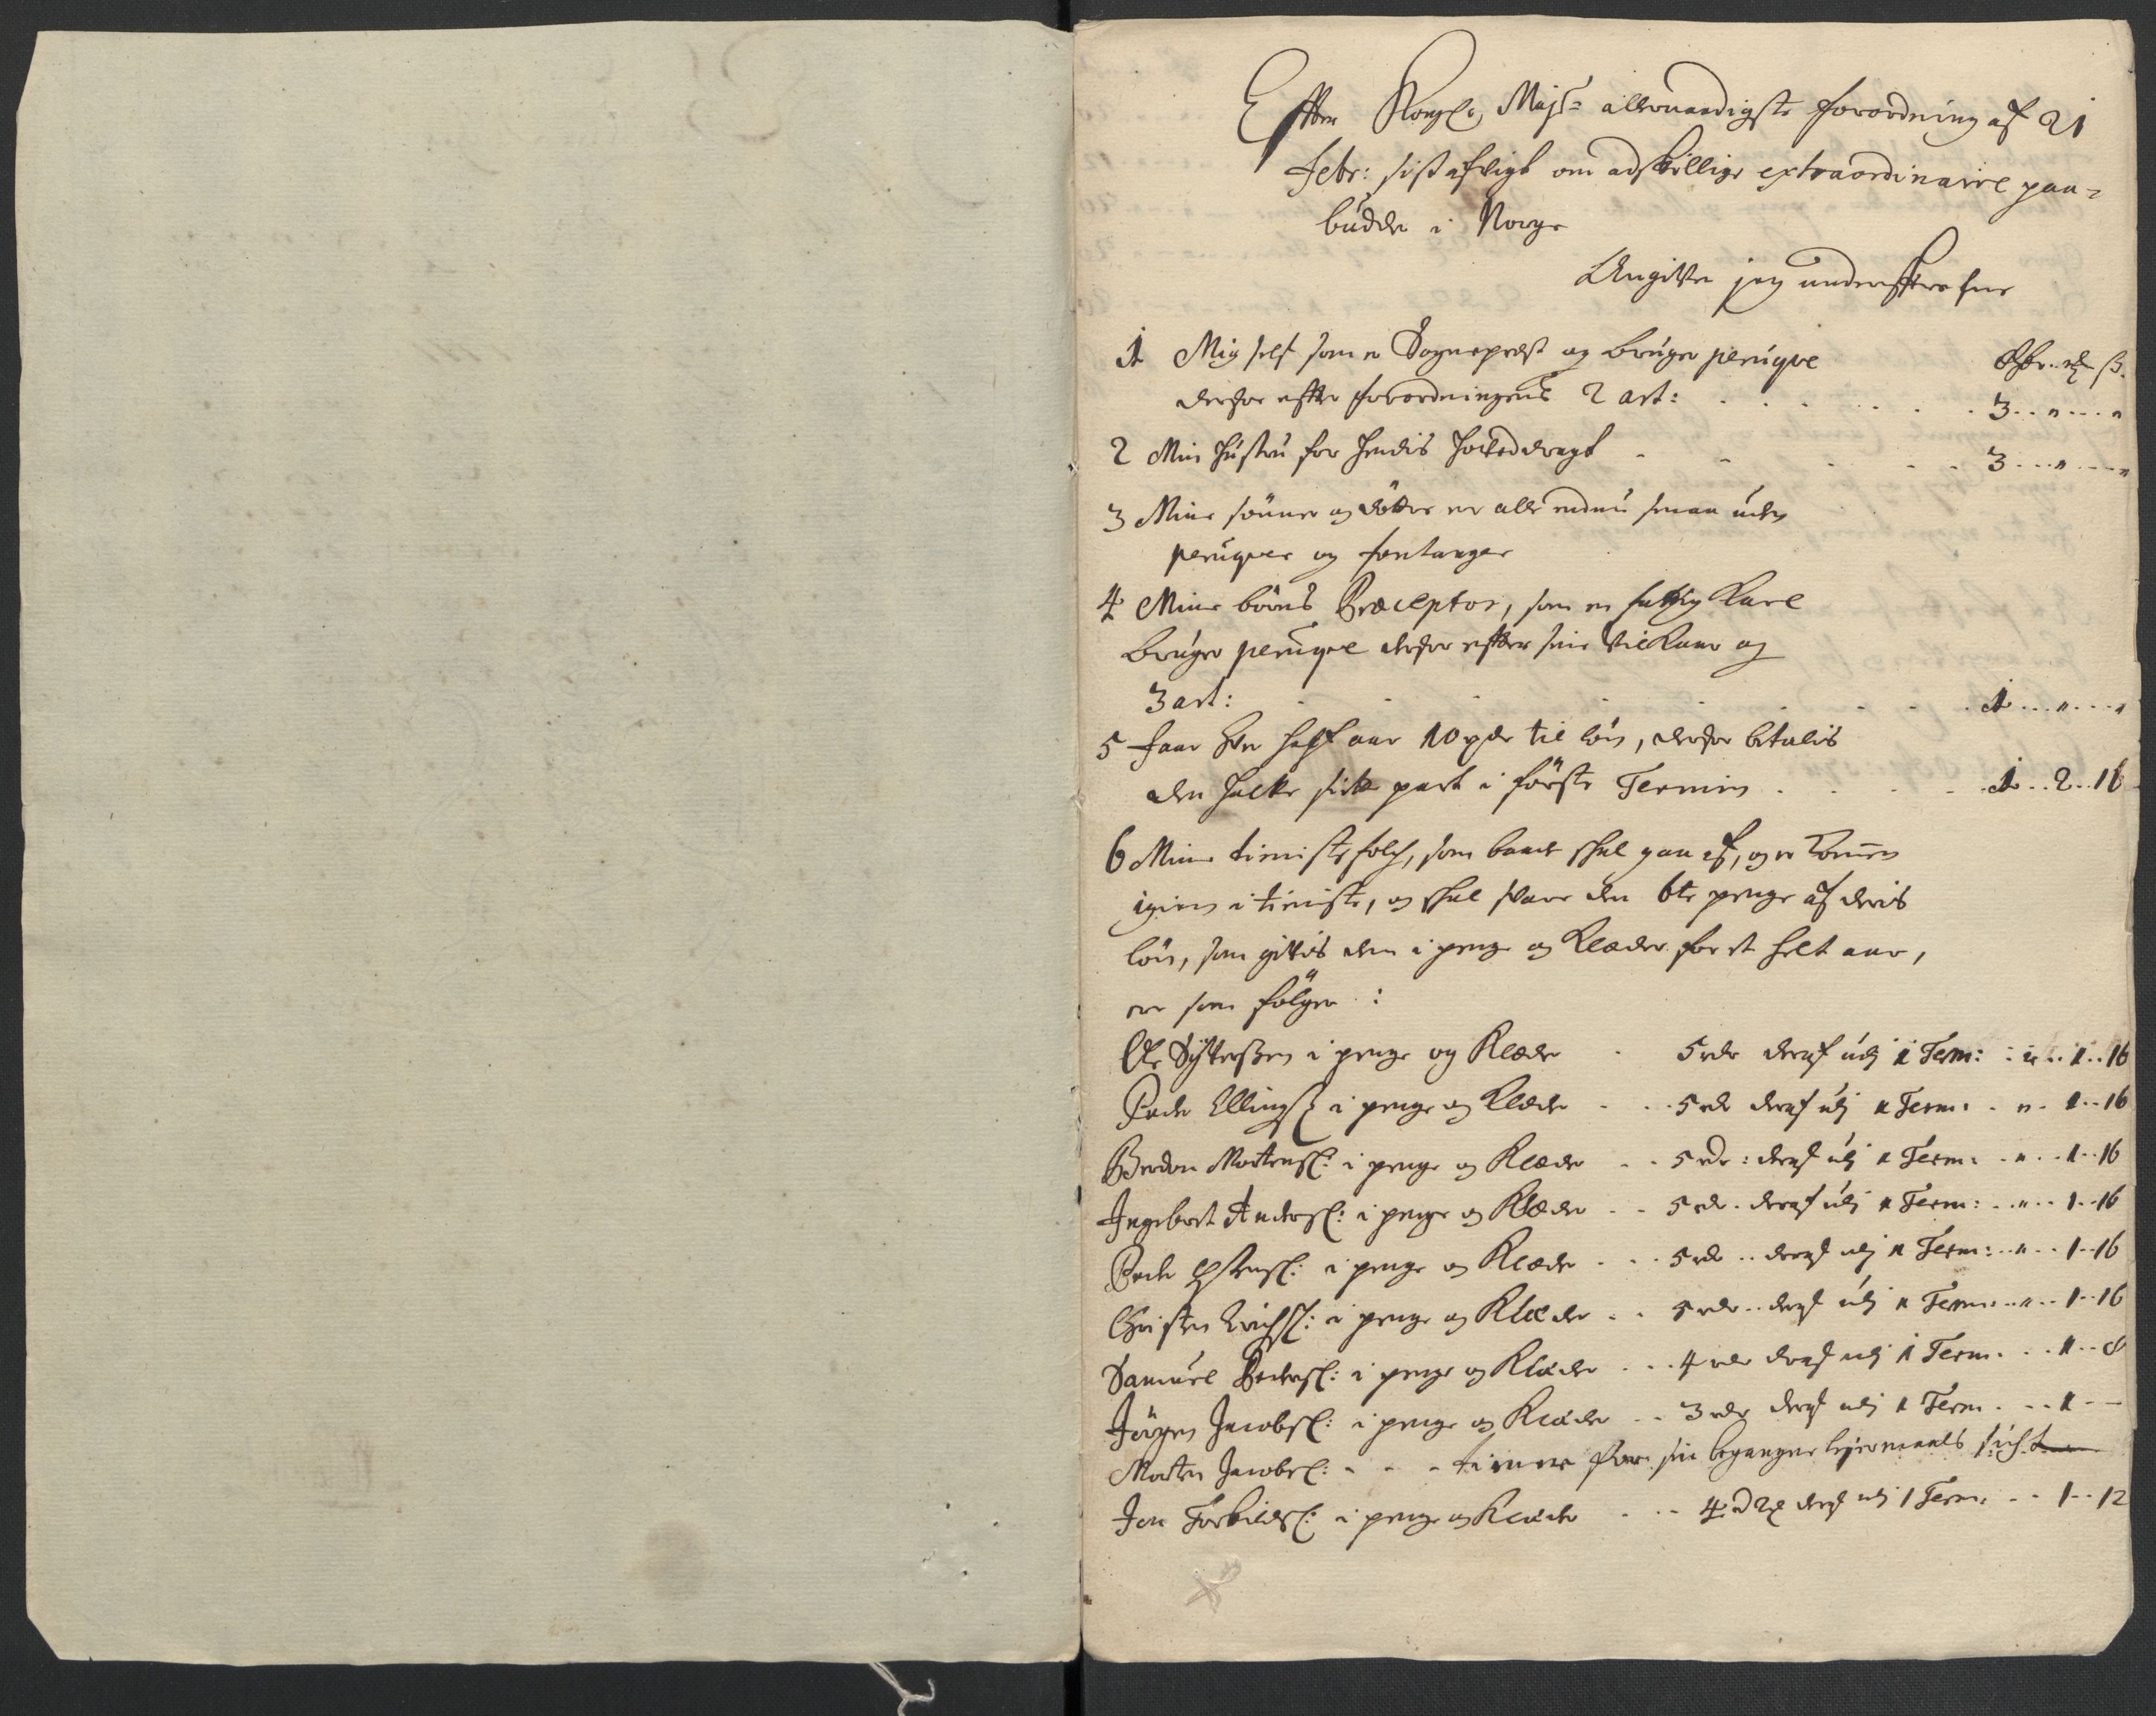 Efter Kongl: Mayts allernaadigste forordning af 21
Febr: sist afvigt om adskillige extraordinaire paa-
budde i Norge
Angiver jeg underskrefne
1 Mig self som er Sognepræst og bruger peruqve
derfor efter forordningens 2 art: . . . 3 . . " . . . "
2 Min hustru for hendis hoveddragt - - - 3 . . . " . . . "
3 Mine sönner og döttre er alle endnu smaa uden
peruqver og fontanger
4 Mine börns Præceptor, som en fattig Karl
bruger peruqve derfor efter sine Vilkaar og
3 art: - - - 1 . . . " . . . "
5 Faar hver half aar 10 rdr til lön, derfor betalis
den halve siette part i förste Termin . . . 1 . . 2 . . 16
6 Mine tieniste folch, som baade skal gaa af, og er kommen
igien i tieniste, og skal svare den 6te penge af deris
lön, som gifvis dem i penge og Klæder for et helt aar,
ere som fölger :
Ole Syversen i penge og Klæder . 5 rdr deraf udj 1 Term: . " . . 1 . . 16
Peder Ellings: i penge og Klæder . . 5 rdr deraf udj 1 Term: . " . 1 . . 16
Mortens: i penge og Klæder . . 5 rdr: deraf udj 1 Term: . " . . 1 . . 16
Ingebret Anders: i penge og Klæder . . 5 rdr. deraf udj 1 Term: . . " . . 1 . . 16
Peder i penge og Klæder . . 5 rdr . . deraf udj 1 Term: . . " . . 1 . . 16
Christen Erichs: i penge og Klæder . . 5 rdr . . deraf udj 1 Term: . . " . . 1 . . 16
Samuel Peders: i penge og Klæder . . . 4 rdr deraf udj 1 Term. . . 1 . . 8
Jörgen Jacobs: i penge og Klæder . . 3 rdr deraf udj 1 Term. . . 1 - -
Morten Jacobs: - - - tiener for sin begangne leyermaals sicht
Jon Torkilds: i penge og Klæder . . . 4 deraf udj 1 Term: . . 1 . . 12